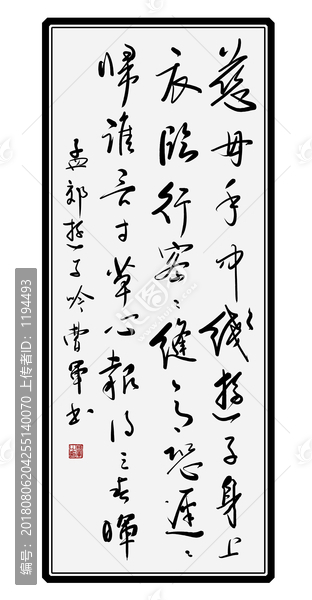 慈母手中线游子身上
衣临行密密缝意恐迟迟
归谁言寸草心报得三春晖
孟郊游子吟曹军书
编号：20180806204255140070 上传者ID：1194493